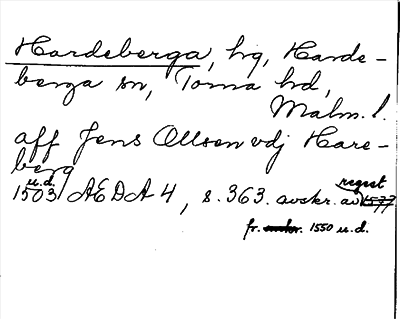 Hardeberga, hg, Harde-
berga sn, Torna hd,
Malm. l.
aff Jens Ollsen vdj Hare-
berg
u.d.
1503 AEDA 4, s. 363. avskr. av regest 1577
fr. 1550 u.d.